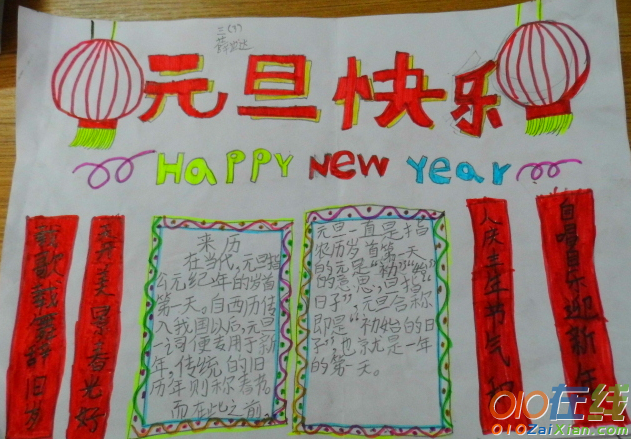 三(7)
元旦快乐
HAPPY NEW YEAR
载歌载舞辞旧岁
美景春光好
人庆丰年节气
自唱自乐迎新年
来历
在当代,元旦指
公元纪年的岁首
第一天。自西历传
入我国以后,元旦
一词便专用于新
年,传统的旧
历年则称春节。
而在此之前,
元旦一直是指
农历岁首第一天
的。元是“初”“始”
的意思,旦指“
日子”,元旦合称
即是“初始的日
子”,也就是一年
的第一天。
010在线
010ZaiXian.com